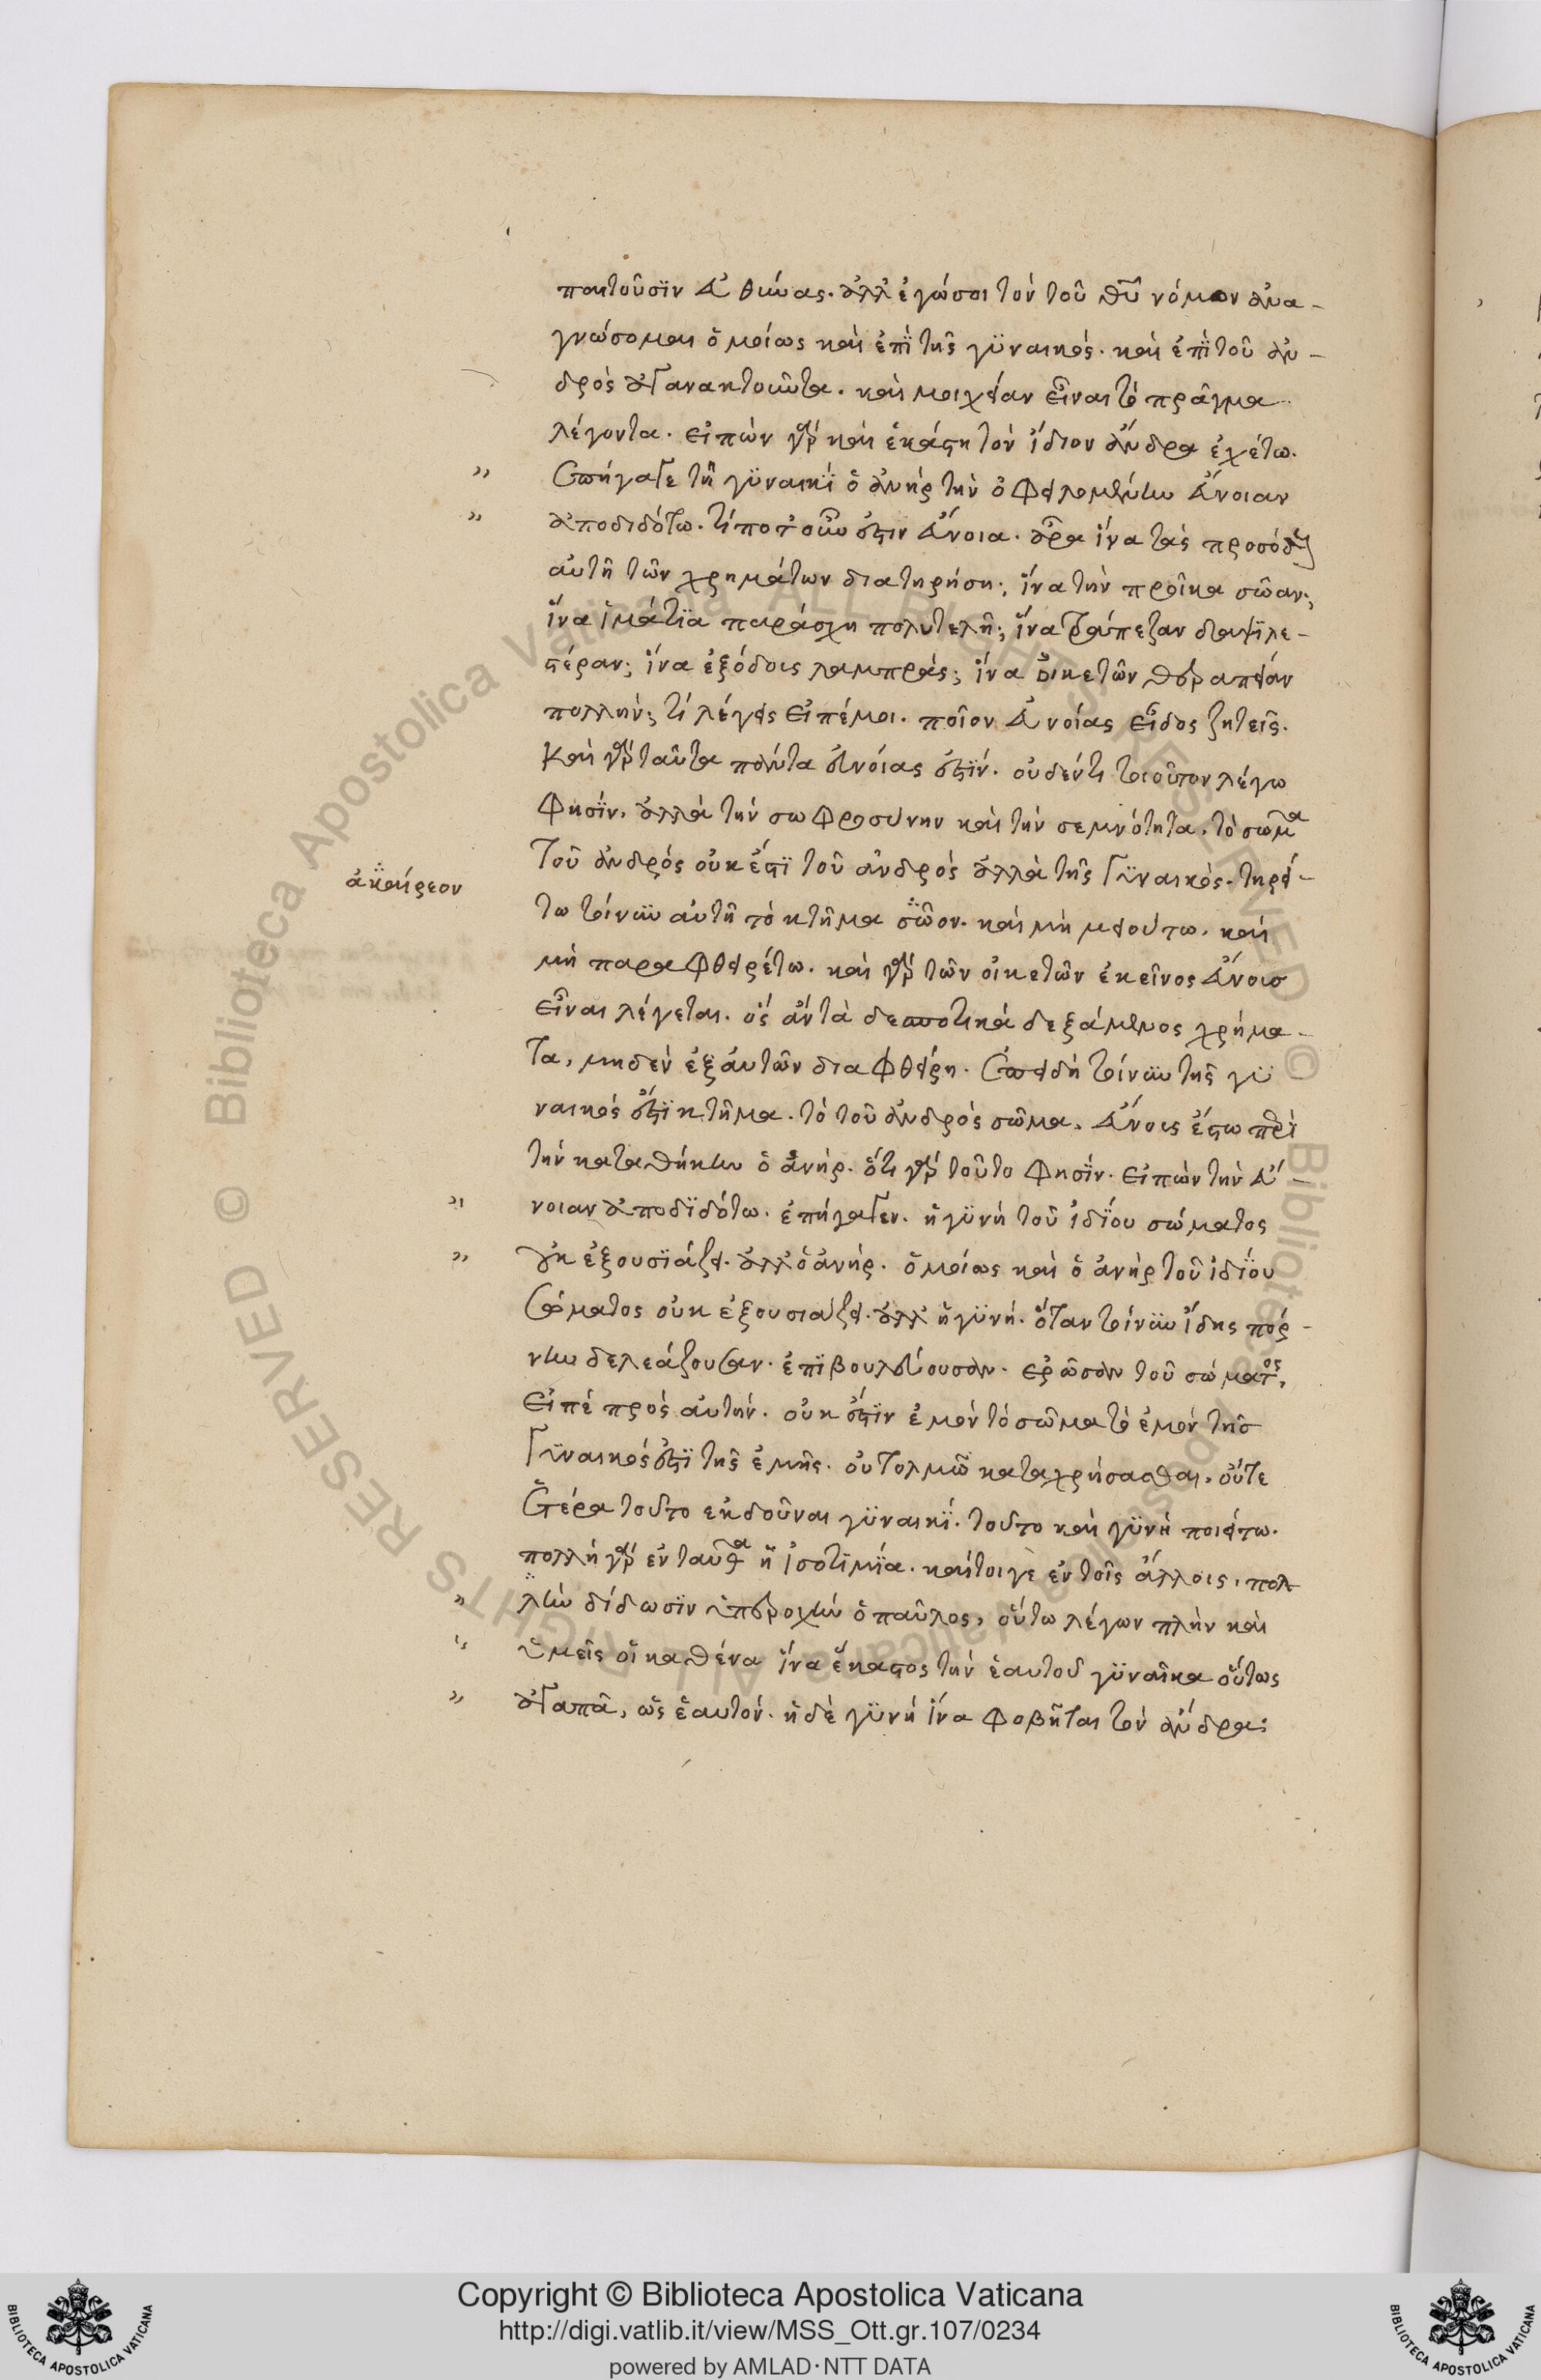 παιτοῦσϊν εὐθύνας. ἀλλ' ἐγώ σοι τὸν τοῦ θυ νόμον ἀνα-
γνώσομαι ὁμοίως καὶ ἐπῒ τῆς γϋναικὸς. καὶ ἐπῒ τοῦ ἀν-
δρὸς ἀγανακτοῦντα. καὶ μοιχείαν εἶναι τὸ πρᾶγμα
λέγοντα. εἰπὼν γὰρ καὶ ἑκάστη τὸν ἴδιον ἄνδρα ἐχέτω.
" ἐπήγαγε τῆ γϋναικῒ ὁ ἀνὴρ τὴν ὀφειλομένην εὔνοιαν
" ἀποδιδότω. τί ποτ' οὖν ἐστιν εὔνοια. ἆρα ἵνα τὰς προσόδους
αὐτῆ τῶν χρημάτων διατηρήση; ἵνα τὴν προῖκα σῶαν;
ἵνα ἱμάτϊα παράσχη πολυτελῆ; ἵνα τράπεζαν δαψϊλε-
στέραν; ἵνα ἐξόδους λαμπράς; ἵνα οἰκετῶν θεραπείαν
πολλήν; τί λέγεις εἰπέ μοι. ποῖον εὐνοίας εἶδος ζητεῖς.
καὶ γὰρ ταῦτα πάντα εὐνοίας ἐστϊν. οὐδέν τι τοιοῦτον λέγω
φησΐν. ἀλλὰ τὴν σωφροσύνην καὶ τὴν σεμνότητα. τὸ σῶμα
ἀκέραιον τοῦ ἀνδρὸς οὐκ ἔστϊ τοῦ ἀνδρὸς ἀλλὰ τῆς γϋναικὸς. τηρεί-
τω τοίνυν αὐτῆ τὸ κτῆμα σῶον. καὶ μὴ μειούτω. καὶ
μὴ παραφθειρέτω. καὶ γὰρ τῶν οἰκετῶν ἐκεῖνος εὔνους
εἶναι λέγεται. ὃς ἂν τὰ δεσποτικὰ δεξάμενος χρήμα-
τα, μηδὲν ἐξ αὐτῶν διαφθείρη. ἐπειδὴ τοίνυν τῆς γϋ
ναικὸς ἐστϊ κτῆμα. τὸ τοῦ ἀνδρὸς σῶμα. εὔνους ἔστω περὶ
τὴν καταθήκην ὁ ἀνὴρ. ὅτι γὰρ τοῦτο φησΐν. εἰπὼν τὴν εὔ-
" νοιαν ἀποδϊδότω. ἐπήγαγεν. ἡ γϋνὴ τοῦ ἰδΐου σώματος
" οὐκ ἐξουσϊάζει. ἀλλ' ὁ ἀνήρ. ὁμοίως καὶ ὁ ἀνὴρ τοῦ ἰδΐου
σώματος οὐκ ἐξουσιάζει. ἀλλ' ἡ γϋνή. ὅταν τοίνυν ἴδης πόρ-
νην δελεάζουσαν. ἐπϊβουλεύουσαν. ἐρῶσαν τοῦ σώματος,
εἰπὲ πρὸς αὐτήν. οὐκ ἔστϊν ἐμὸν τὸ σῶμα τὸ ἐμὸν τῆς
γϋναικός ἐστϊ τῆς ἐμῆς. οὐ τολμῶ καταχρήσασθαι. οὔτε
ἑτέρα τουτο ἐκδοῦναι γϋναικΐ. τουτο καὶ γϋνὴ ποιείτω.
πολλὴ γὰρ ἐνταῦθα ἡ ἰσοτϊμΐα. καίτοιγε ἐν τοῖς ἄλλοις. πολ
" λὴν δίδωσϊν ὑπεροχὴν ὁ παῦλος, οὕτω λέγων πλὴν καὶ
" ὑμεῖς οἱ καθένα ἵνα ἕκαστος τὴν ἑαυτοῦ γϋναῖκα οὕτως
" ἀγαπᾶ, ὡς ἑαυτόν. ἡ δὲ γϋνὴ ἵνα φοβῆται τὸν ἄνδρα:
Copyright © Biblioteca Apostolica Vaticana
http://digi.vatlib.it/view/MSS_Ott.gr.107/0234
powered by AMLAD·NTT DATA